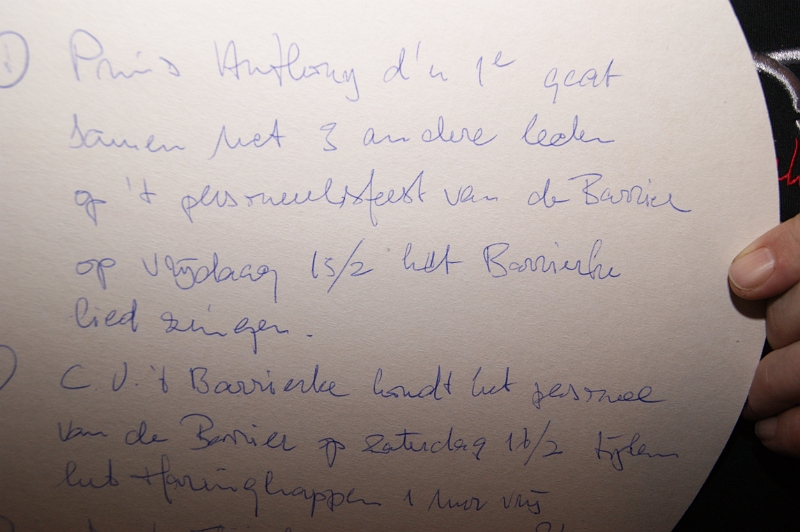 1) Prins Anthony d'n 1e gaat
samen met 3 andere leden
op 't personeelsfeest van de Barrier
op vrijdag 15/2 het Barrierke
lied zingen.
C.V. 't Barrierke houdt het personeel
van de Barrier op zaterdag 16/2 tijdens
het Haringhappen 1 uur vrij